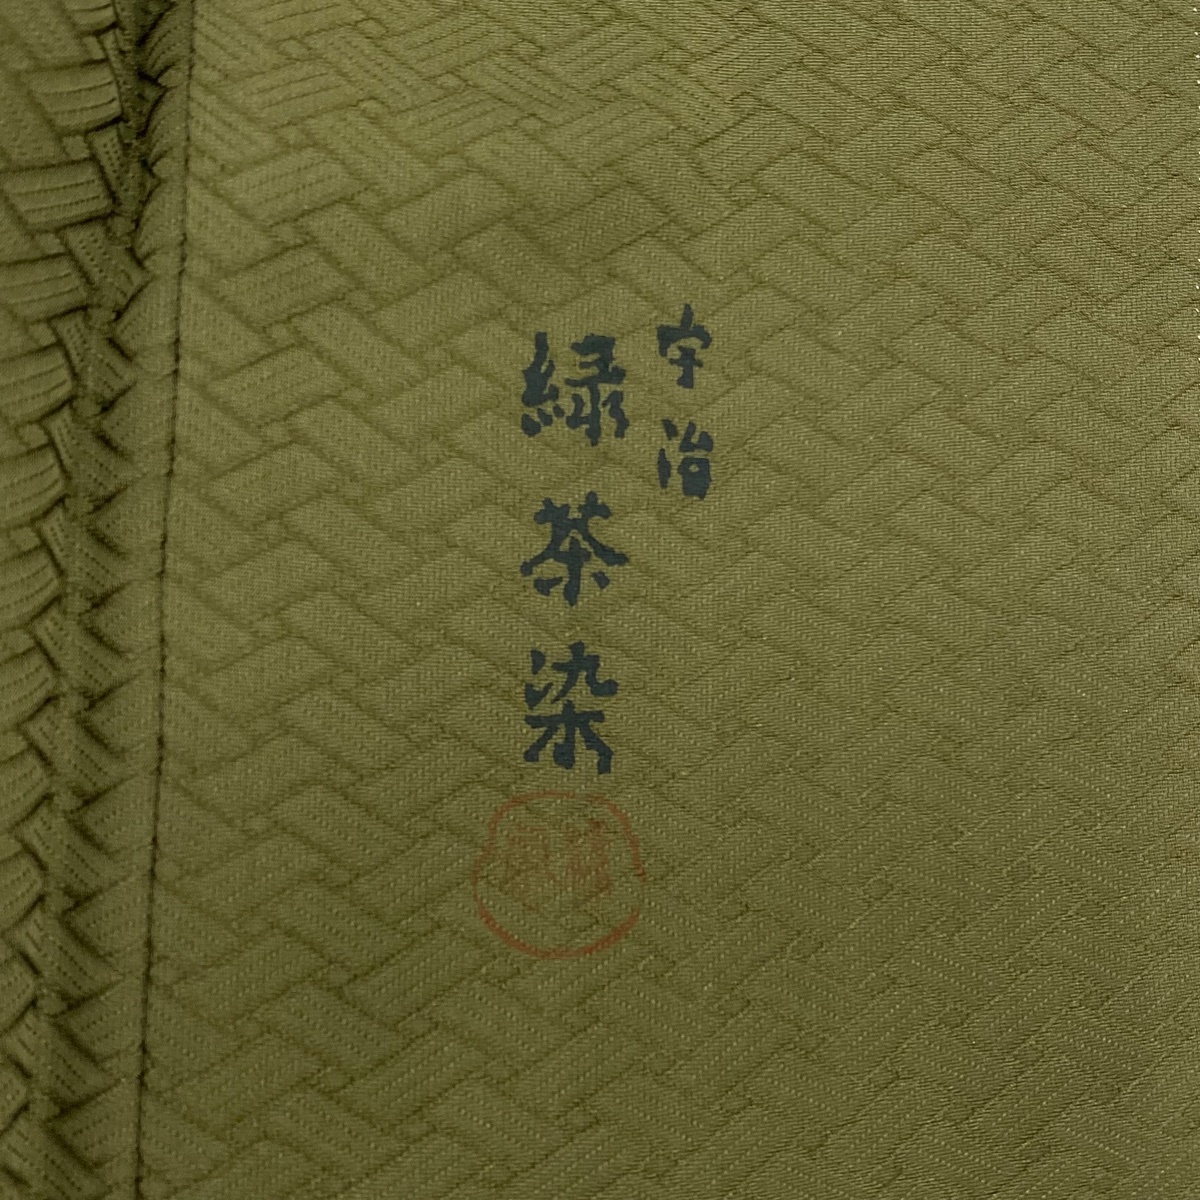 宇治
緑茶染